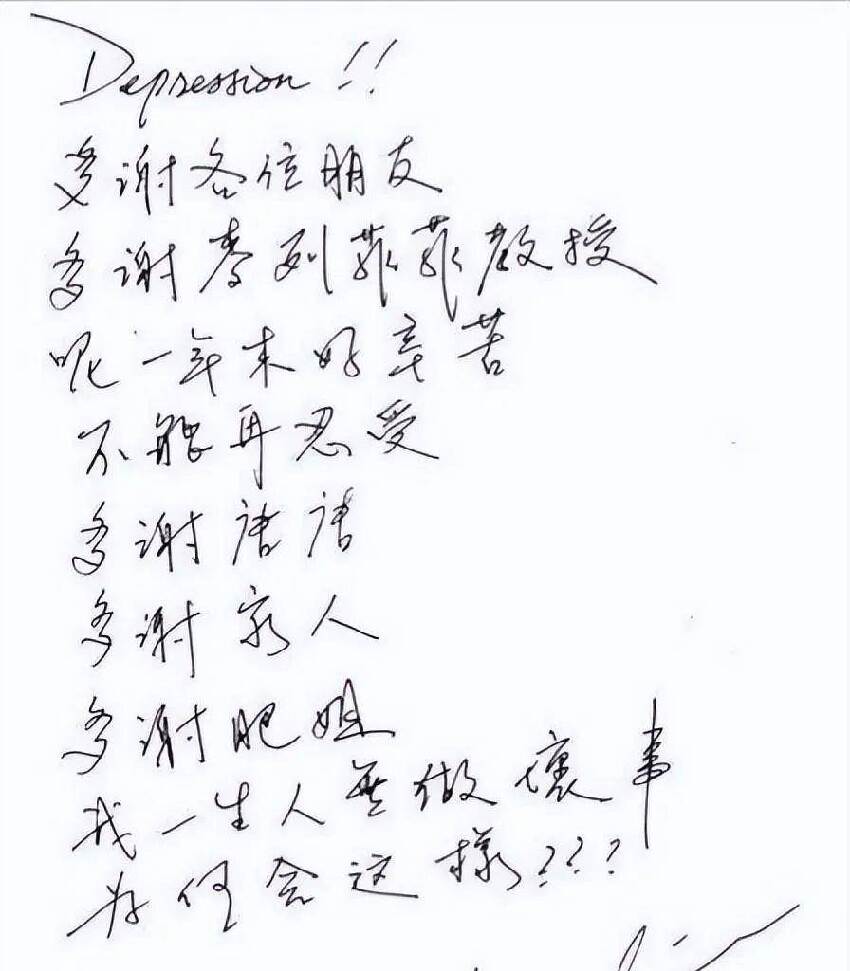 Depression!!
多謝各位朋友
多謝麥列菲菲教授
呢一年來好辛苦
不能再忍受
多謝唐唐
多謝家人
多謝肥姐
我一生人無做壞事
為何會這樣???